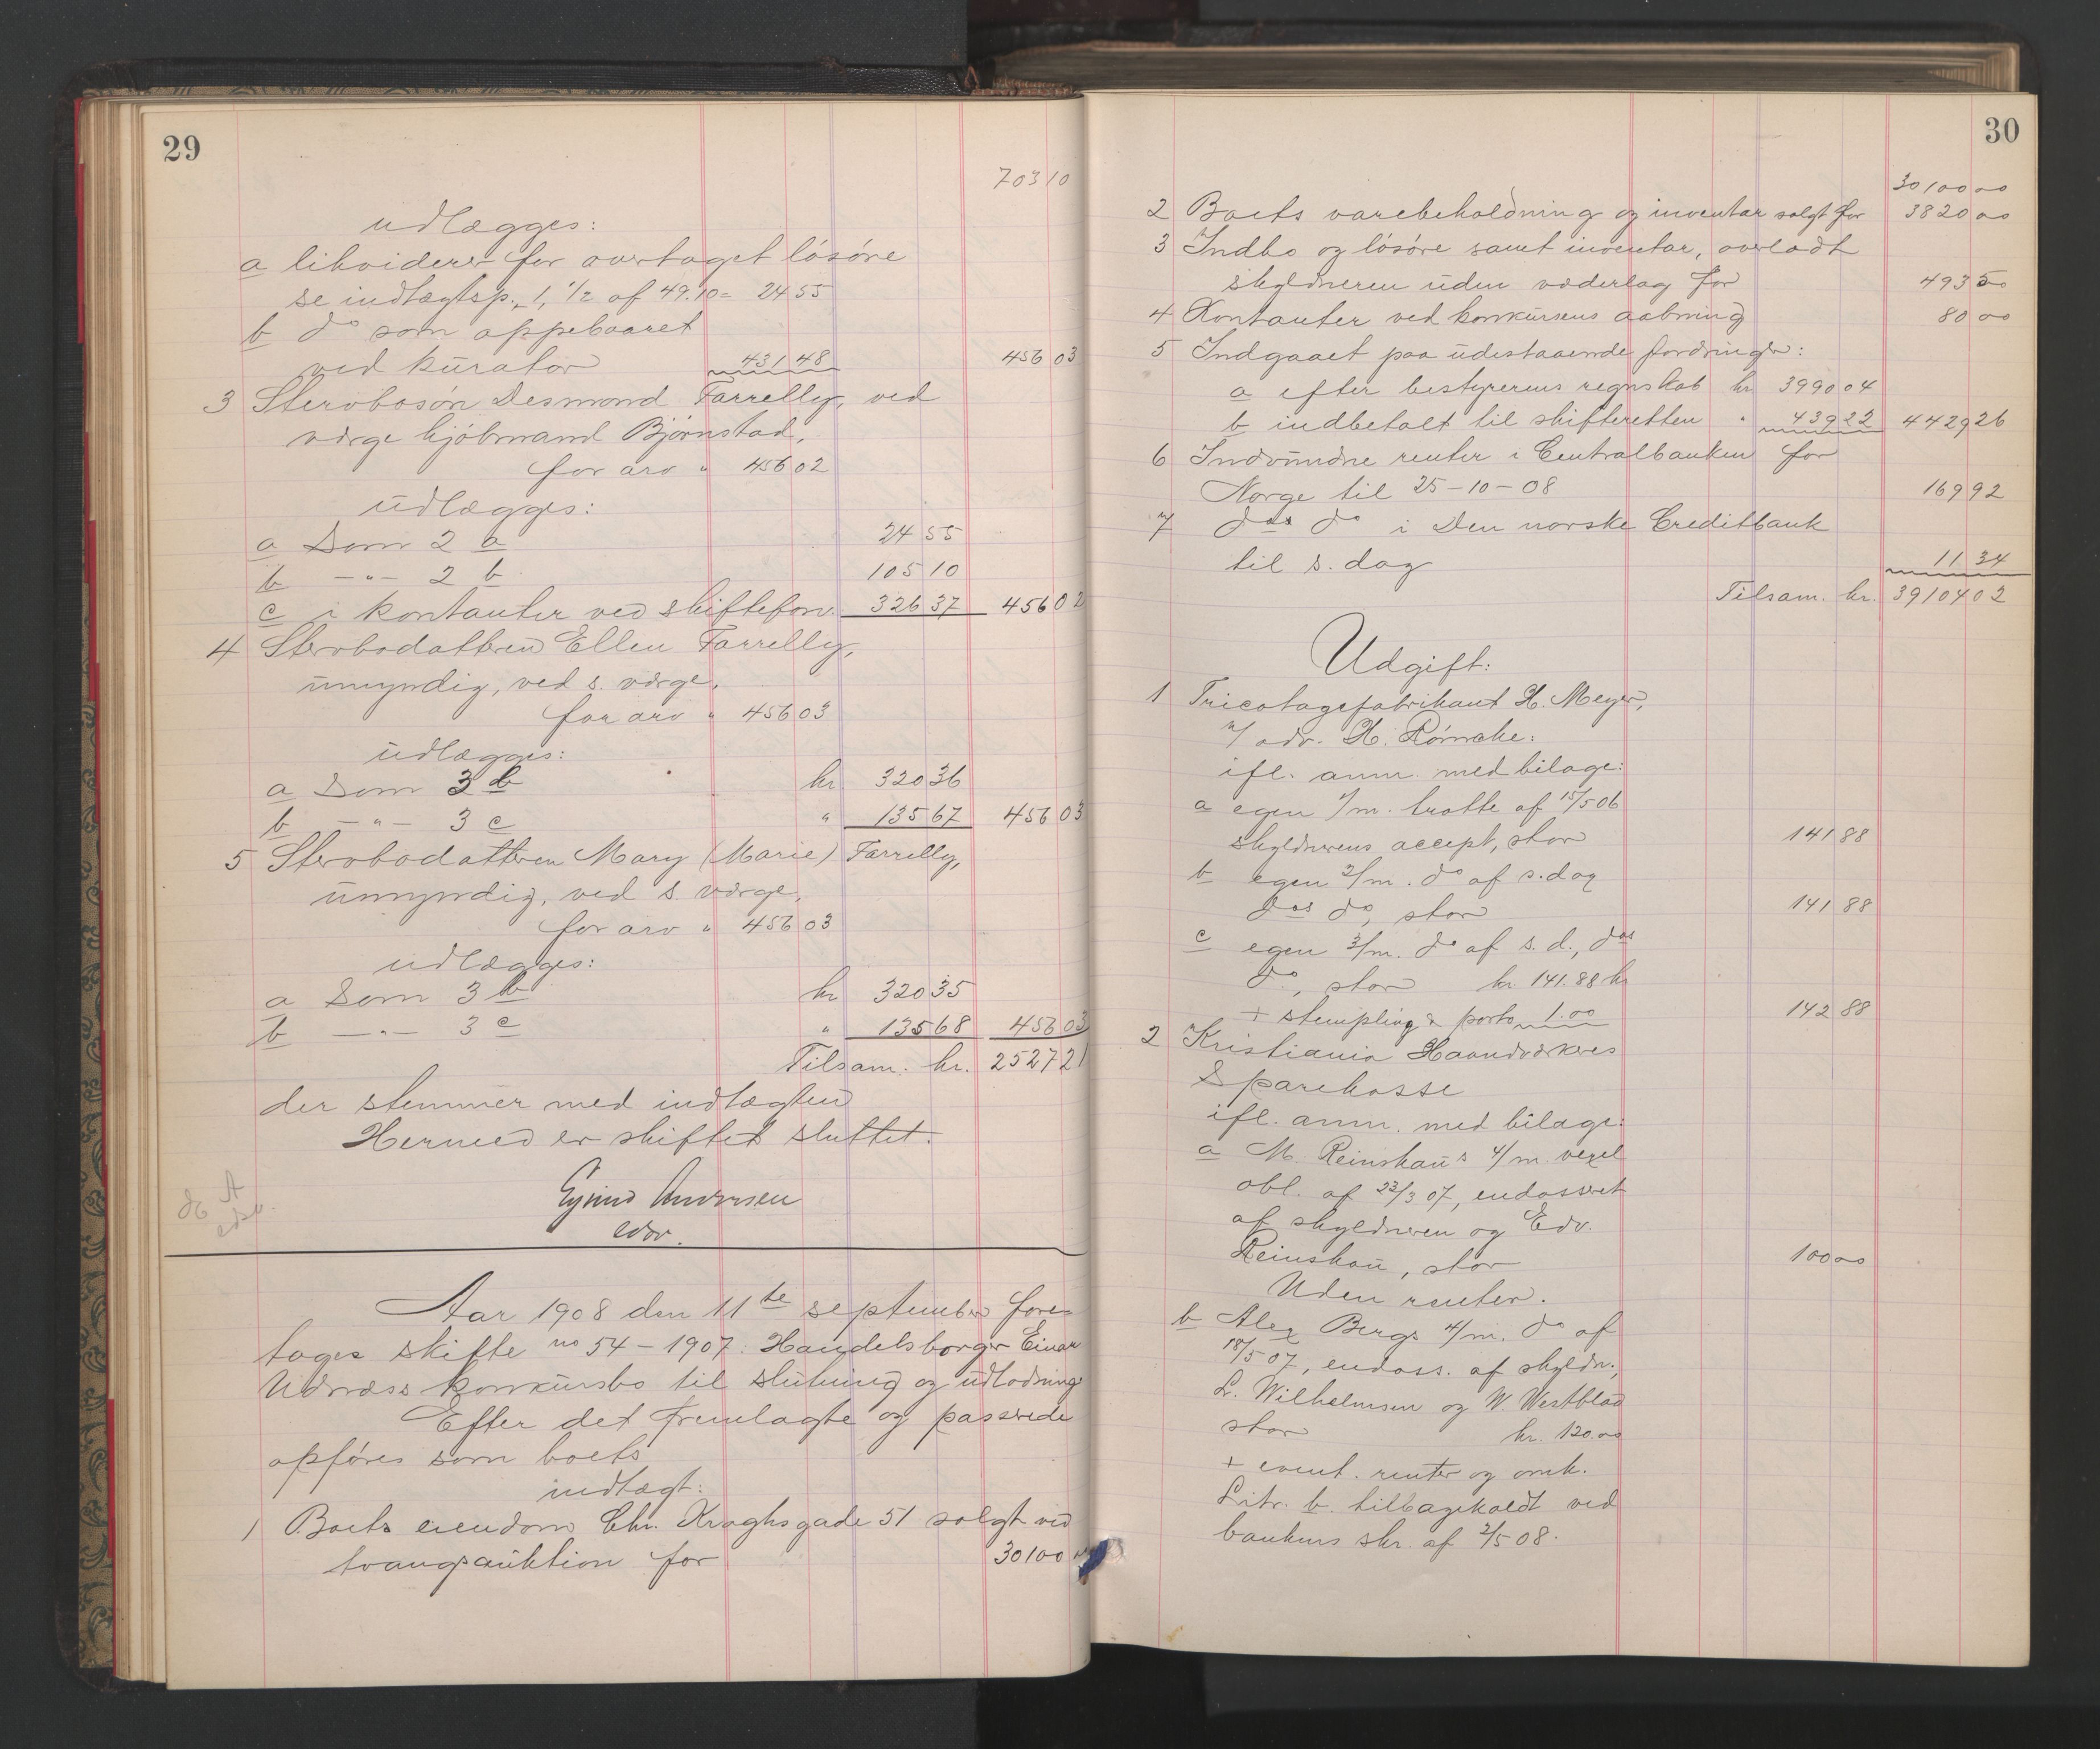 29
703 10
udlægges:
a likviderer for overtaget løsøre
se indtægtsp. 1, 1/2 af 49.10 = 24 55
b do som oppebaaret
ved kurator 431 48 456 03
3 Stervbosøn Desmond Farrelly, ved
værge kjøbmand Bjørnstad,
for arv " 456 02
udlægges:
a Som 2 a 24 55
b -"- 2 b 105 10
c i kontanter ved skifteforv. 326 37 456 02
4 Stervbodatteren Ellen Farrelly,
umyndig, ved s. værge,
for arv " 456 03
udlægges:
a Som 3 b kr 320 36
b -"- 3 c " 135 67 456 03
5 Stervbodatteren Mary (Marie) Farrelly,
umyndig, ved s. værge,
for arv " 456 03
udlægges:
a Som 3 b kr 320 35
b -"- 3 c " 135 68 456 03
Tilsam. kr. 2527 21
der stemmer med indtægten
Hermed er skiftet sluttet.
Eyvind Andersen
edsv.
Aar 1908 den 11te september fore-
tages skifte no 54 - 1907: Handelsborger Einar
Udnæss konkursbo til slutning og udlodning
Efter det fremlagte og passerede
opføres som boets
indtægt:
1 Boets eiendom Chr. Kroghsgade 51 solgt ved
tvangsauktion for 30100 00
30
30100 00
2 Boets varebeholdning og inventar solgt for 3820 00
3 Indbo og løsøre samt inventar, overladt
skyldneren uden vederlag for 493 50
4 Kontanter ved konkursens aabning 80 00
5 Indgaaet paa udestaaende fordringer:
a efter bestyrerens regnskab kr 3990 04
b indbetalt til skifteretten " 439 22 4429 26
6 Indvundne renter i Centralbanken for
Norge til 25-10-08 169 92
7 dos do i Den norske Creditbank
til s. dag 11 34
Tilsam. kr. 39104 02
Udgift:
1 Tricotagefabrikant H. Meyer,
v/ adv. H. Rømcke:
ifl. anm. med bilage:
a egen 1/m. tratte af 15/5 06
skyldnerens accept, stor 141 88
b egen 2/m. do af s. dag
dos do, stor 141 88
c egen 3/m. do af s. d., dos
do, stor kr 141.88 kr
+ stempling & porto 1.00 142 88
2 Kristiania Haandværkeres
Sparekasse
ifl. anm. med bilage:
a M. Reinskau's 4/m. vexel
obl. af 23/3 07, endosseret
af skyldneren og Edv.
Reinskau, stor 100 00
Uden renter.
b Alex Bergs 4/m. do af
18/5 07, endoss. af skyldn.,
L. Wilhelmsen og W. Westblad
stor kr. 120.00
+ event. renter og omk.
Litr. b. tilbagekaldt ved
bankens skr. af 2/5 08.